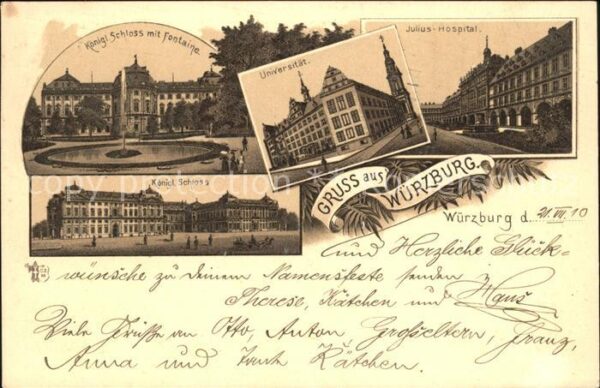 Königl. Schloss mit Fontaine.
Universität.
Julius-Hospital.
Königl. Schloss
GRUSS aus WÜRZBURG.
Würzburg d. 21. VII. 10
und Herzliche Glück-
wünsche zu deinem Namensfeste senden
Therese, Kätchen und Hans
Viele Grüße an Otto, Anton Großeltern, Franz,
Anna und Tante Kätchen.